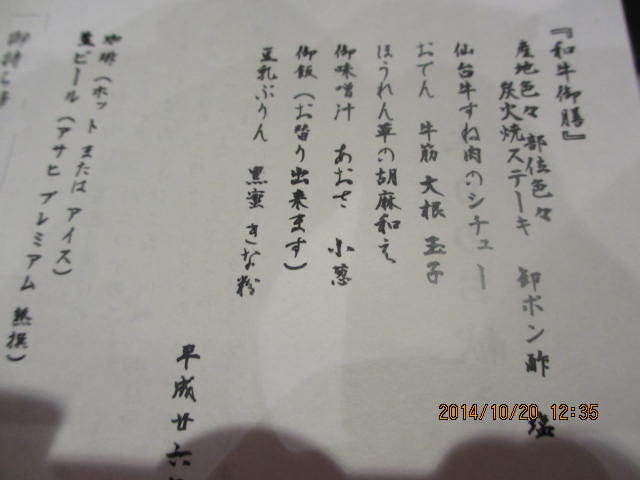 『和牛御膳』
産地色々 部位色々
炭火焼ステーキ 卸ポン酢 塩
仙台牛すね肉のシチュー
おでん 牛筋 大根 玉子
ほうれん草の胡麻和え
御味噌汁 あおさ 小葱
御飯（お替り出来ます）
豆乳ぷりん 黒蜜 きな粉
平成廿六
珈琲（ホット または アイス）
生ビール（アサヒ プレミアム 熟撰）
2014/10/20 12:35